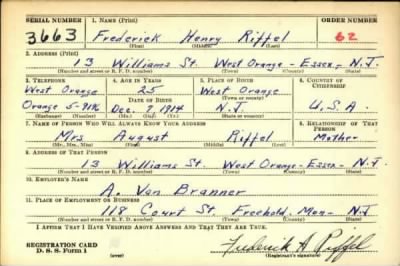 SERIAL NUMBER 1. NAME (Print) ORDER NUMBER
3663 Frederick Henry Riffel 62
(First) (Middle) (Last)
2. ADDRESS (Print)
13 Williams St. West Orange - Essex - N.J.
(Number and street or R. F. D. number) (Town) (County) (State)
3. TELEPHONE 4. AGE IN YEARS 5. PLACE OF BIRTH 6. COUNTRY OF CITIZENSHIP
West Orange 25 West Orange
DATE OF BIRTH (Town or county)
Orange 5- Dec. 7, 1914 N.J. U.S.A.
(Exchange) (Number) (Mo.) (Day) (Yr.) (State or country)
7. NAME OF PERSON WHO WILL ALWAYS KNOW YOUR ADDRESS 8. RELATIONSHIP OF THAT PERSON
Mrs August Riffel Mother
(Mr., Mrs., Miss) (First) (Middle) (Last)
9. ADDRESS OF THAT PERSON
13 Williams St. West Orange - Essex - N.J.
(Number and street or R. F. D. number) (Town) (County) (State)
10. EMPLOYER'S NAME
A. Van Branner
11. PLACE OF EMPLOYMENT OR BUSINESS
118 Court St. Freehold, Mon - N.J.
(Number and street or R. F. D. number) (Town) (County) (State)
I AFFIRM THAT I HAVE VERIFIED ABOVE ANSWERS AND THAT THEY ARE TRUE.
REGISTRATION CARD
D. S. S. Form 1 (over) Frederick H Riffel
(Registrant's signature)